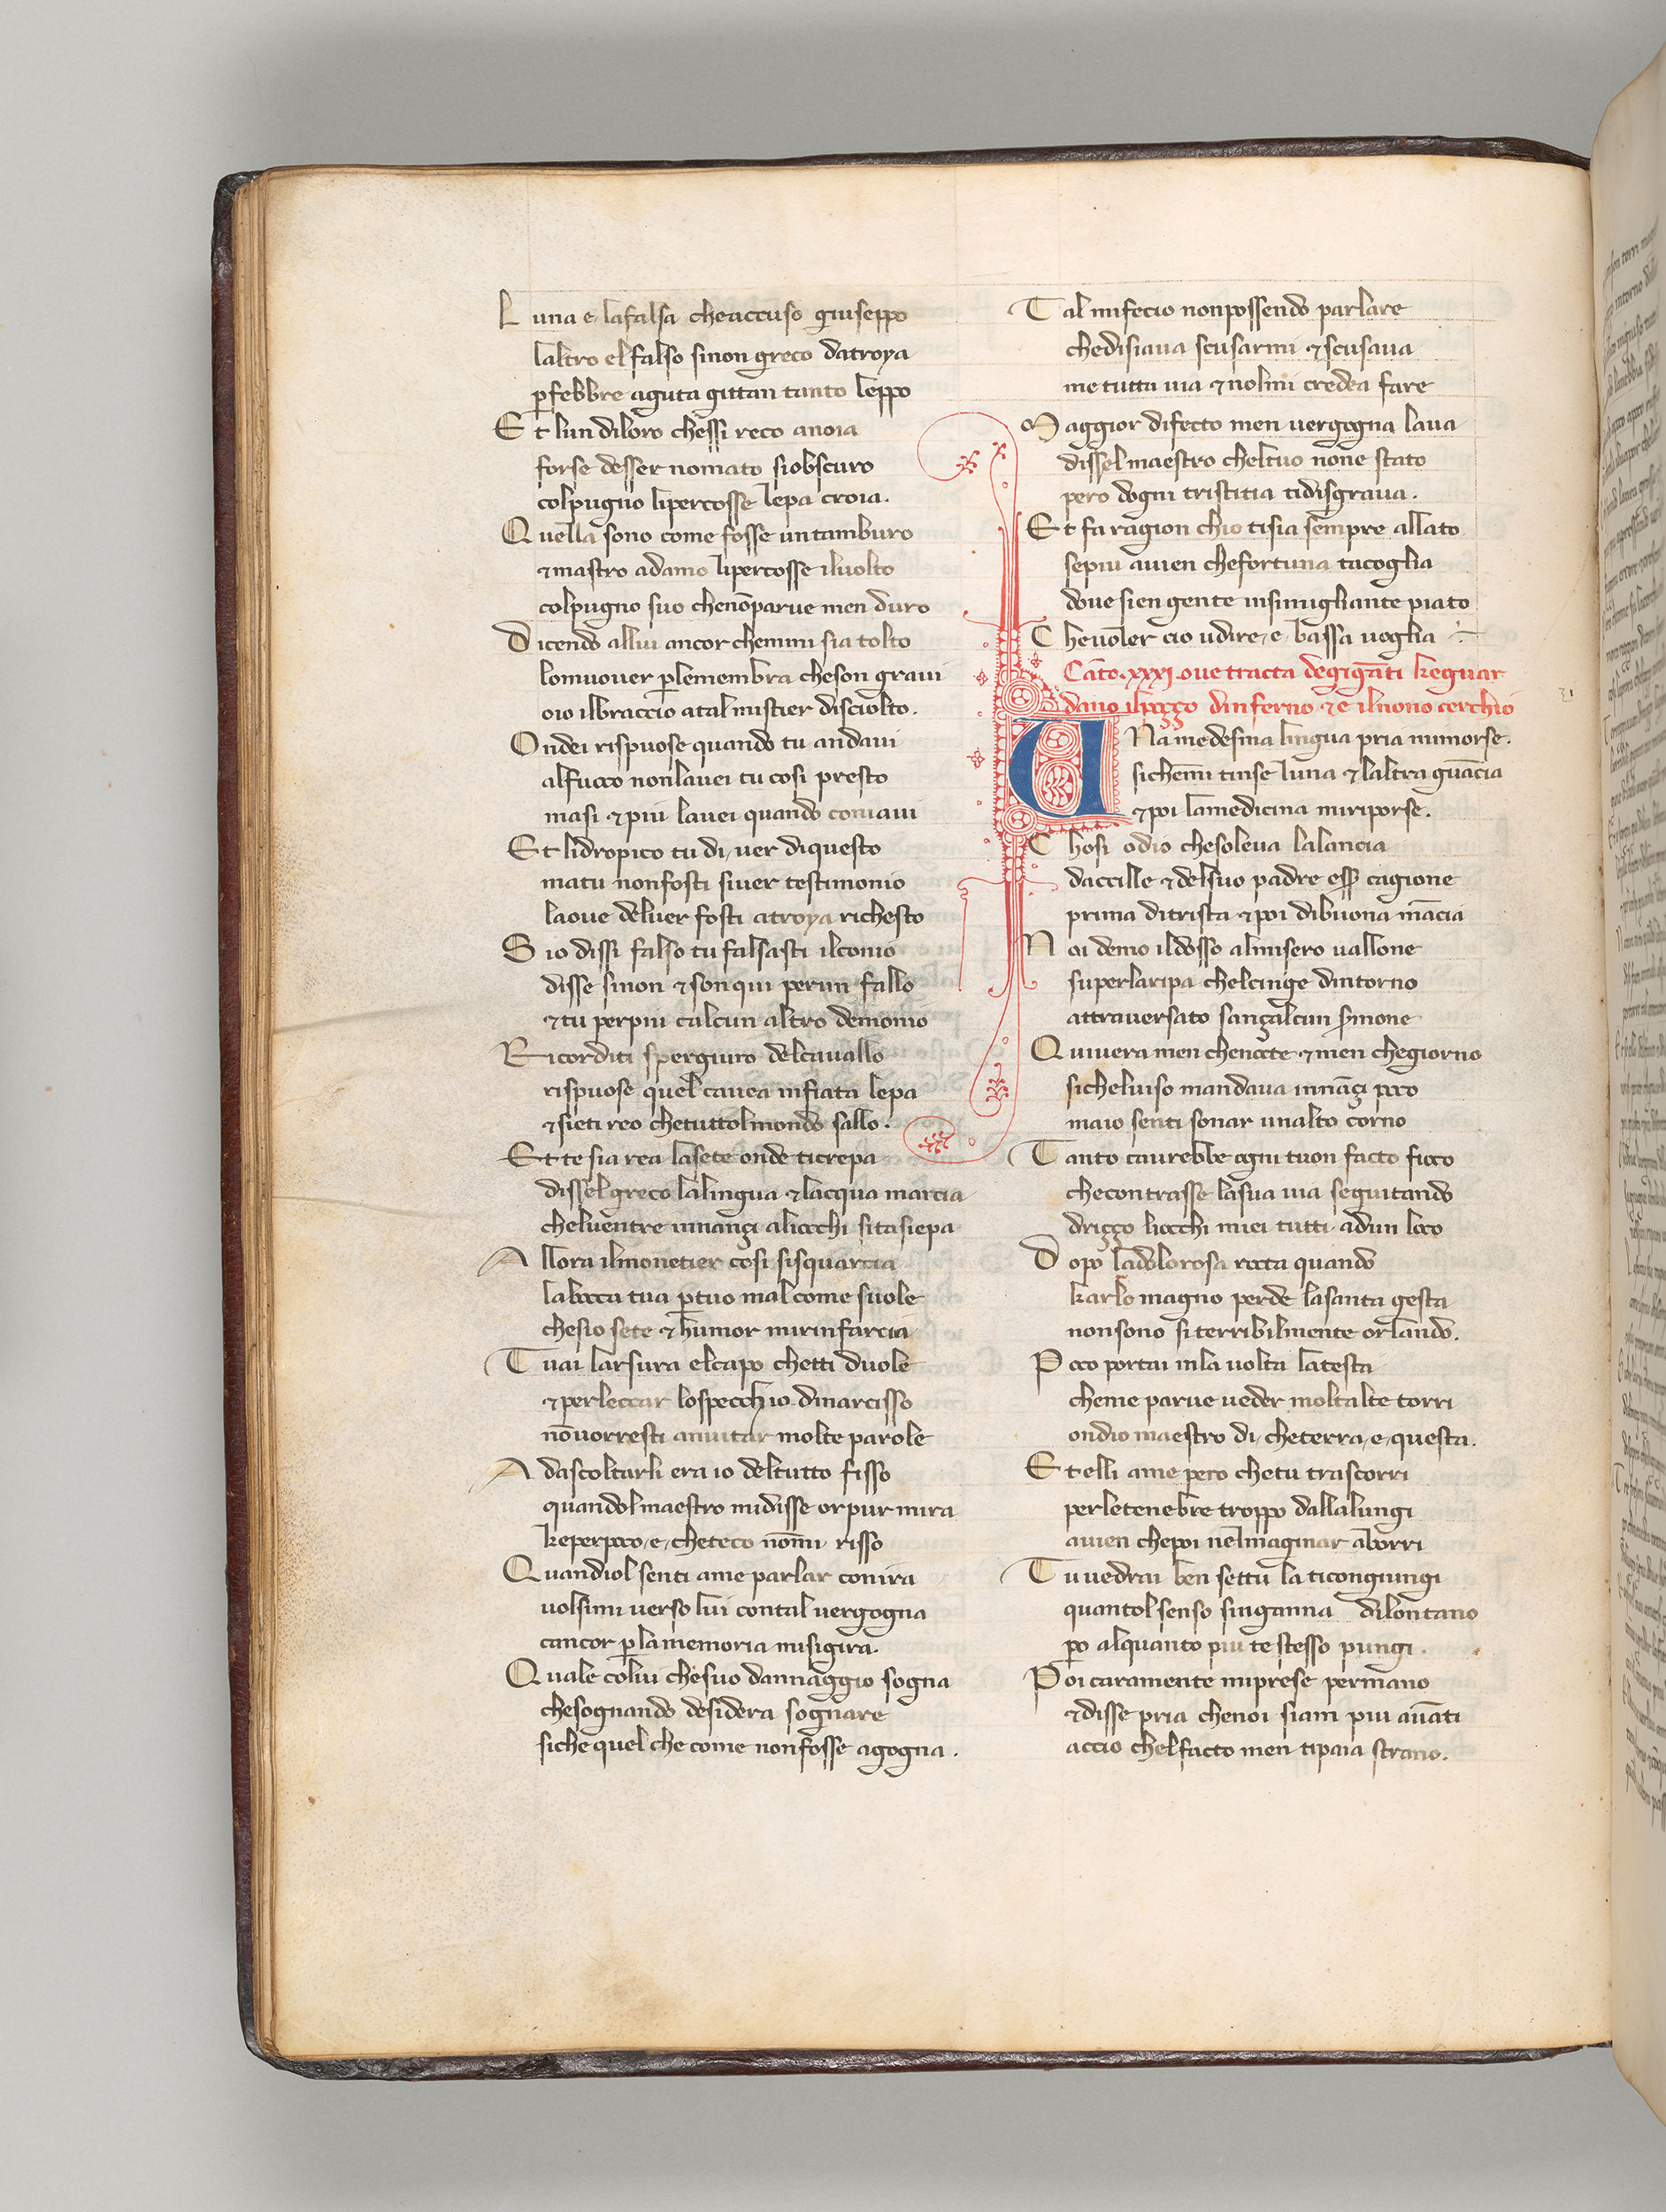 L una e lafalsa cheaccuso giuseppo
laltro elfalso sinon greco datroya
p febbre aguta gittan tanto leppo
E t lun diloro chessi reco anoia
forse desser nomato siobscuro
colpugno lipercosse lepa croia.
Q uella sono come fosse untamburo
⁊mastro adamo lipercosse iluolto
colpugno suo chenōparue men duro
D icendo allui ancor chemmi sia tolto
lomuouer plemembra cheson graui
oio ilbraccio atal mistier disciolto.
O ndei rispuose quando tu andaui
alfuoco nonlauei tu cosi presto
masi ⁊ piu lauei quando coniaui
E t lidropico tu di uer diquesto
matu nonfosti siuer testimonio
laoue deluer fosti atroya richesto
S io dissi falso tu falsasti ilconio
disse sinon ⁊ son qui perun fallo
⁊tu perpiu calcun altro demonio
R icorditi spergiuro delcauallo
rispuose quel cauea infiata lepa
⁊sieti reo chetuttolmondo sallo.
E t te sia rea lasete onde ticrepa
disselgreco lalingua ⁊ lacqua marcia
cheluentre innanzi aliocchi sitasiepa
A llora ilmonetier cosi sisquarcia
labocca tua p tuo mal come suole
chesio sete ⁊ humor mirinfarcia
T uai larsura elcapo chetti duole
⁊perleccar lospecchio dinarcisso
nōuorresti anuitar molte parole
A dascoltarli era io deltutto fisso
quandolmaestro midisse or pur mira
keperpoco e cheteco nonmi risso
Q uandiol senti ame parlar conira
uolsimi uerso lui contal uergogna
cancor p lamemoria misigira.
Q uale colui chesuo dannaggio sogna
chesognando desidera sognare
siche quel che come nonfosse agogna.
T al mifecio nonpossendo parlare
chedisiaua scusarmi ⁊ scusaua
me tutta uia ⁊ nolmi credea fare
M aggior difecto men uergogna laua
disselmaestro cheltuo none stato
pero dogni tristitia tidisgraua.
E t fa ragion chio tisia sempre allato
sepiu auien chefortuna tacoglia
doue sien gente insimigliante piato
C heuoler cio udire e bassa uoglia
Cāto. xxxi. oue tracta degigāti keguar
dano ilpozzo dinferno ⁊ e ilnono cerchio
31
U Na medesma lingua pria mimorse.
sichemi tinse luna ⁊ laltra guācia
⁊poi lamedicina miriporse.
C hosi odio chesoleua lalancia
daccille ⁊ delsuo padre esser cagione
prima ditrista ⁊ poi dibuona mācia
N oi demo ildosso almisero uallone
superlaripa chelcinge dintorno
attrauersato sanzalcun sermone
Q uiuera men chenocte ⁊ men chegiorno
sicheluiso mandaua innāzi poco
maio senti sonar unalto corno
T anto caurebbe ogni tuon facto fioco
checontrasse lasua uia seguitando
drizzo liocchi miei tutti adun loco
D opo ladolorosa rocta quando
karlo magno perde lasanta gesta
nonsono siterribilmente orlando.
P oco portai inla uolta latesta
cheme parue ueder moltalte torri
ondio maestro di cheterra e questa.
E t elli ame pero chetu trascorri
perletenebre troppo dallalungi
auien chepoi nelmaginar aborri
T u uedrai ben settu la ticongiungi
quantol senso singanna dilontano
po alquanto piu te stesso pungi.
P oi caramente miprese permano
⁊disse pria chenoi siam piu auāti
accio chelfacto men tipaia strano.